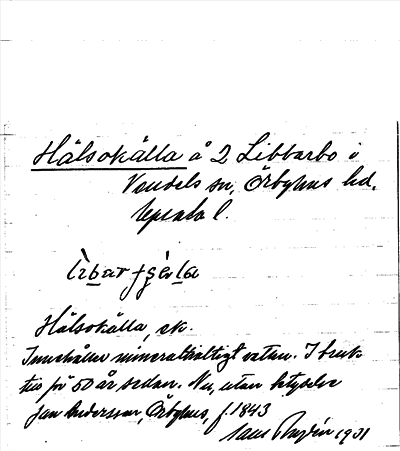 Hälsokälla å 2 Libbarbo i
Vendels sn, Örbyhus hd,
Uppsala l.
Hälsokälla, sk.
Innehåller mineralhaltigt vatten. I bruk
för 50 år sedan. Nu, utan betydelse
Jan Andersson, Örbyhus, f. 1843
1931